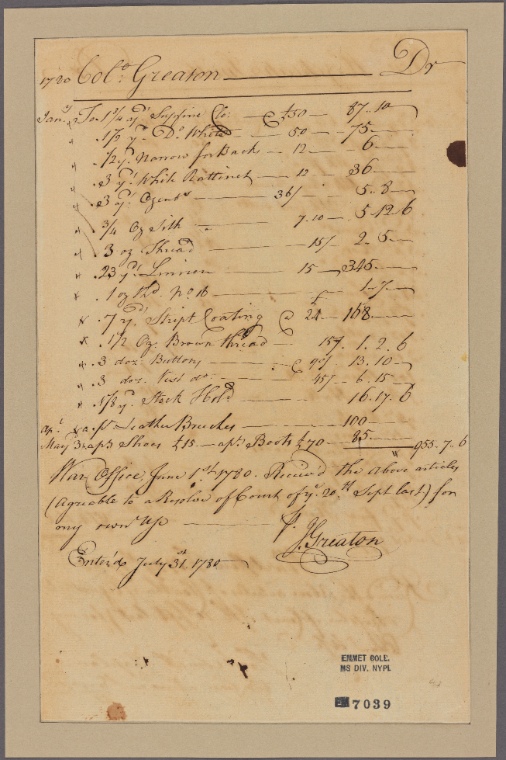 1780 Colo. Greaton Dr
Jany. To 1¾ yd. Supfine Clo: @ £50 — 87.10
" 1½ yd. Do. White — 50 — 75
" ½ yd. Narrow for Back — 12 — 6
" 3 yd. White Rattinet — 12 — 36
" 3 yd. 36/ — 5.8
" ¾ Oz Silk — 7.10 — 5.12.6
" 3 oz. Thread — 15/ — 2.5
" 23 yd. Linnen — 15 — 345
" 1 oz Thd. No. 16 — 1.7
" 7 yd. Stript Coating @ £24 — 168
" 1½ Oz. Brown Thread — 15/ — 1.2.6
" 3 doz. Buttons — @ 90/ — 13.10
" 3 doz. Vest do — 45/ — 6.15
" 1⅛ yd. Stock — 16.17.6
Apl. " a pr. Leather Breeches — 100
May 3 a pr Shoes £15 — a pr. Boots £70 — 85 — 955.7.6
War Office June 1st. 1780. Received the above articles
(Agreable to a Resolve of Court of ye. 20th Sept last) for
my own Use
J Greaton
Enter'd July 31. 1780
EMMET COLL.
MS DIV. NYPL
7039